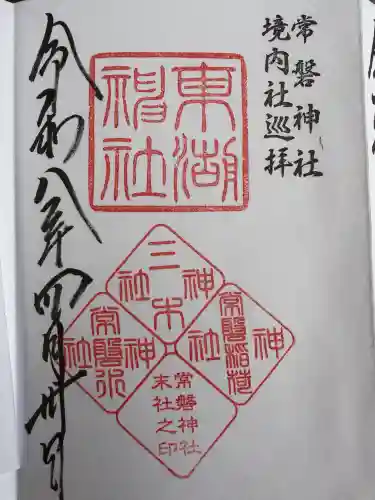 常磐神社
境内社巡拝
東湖
神社
令和八年四月卅日
三木
神社
常磐稲荷
神社
常磐水
神社
常磐神社
末社之印